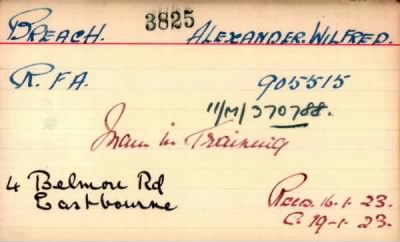 3825
BREACH. ALEXANDER. WILFRED.
R. F. A. 905515
11/M/370788.
Man in Training
4 Belmore Rd
Eastbourne
Recd. 16-1-23.
C. 19-1-23.